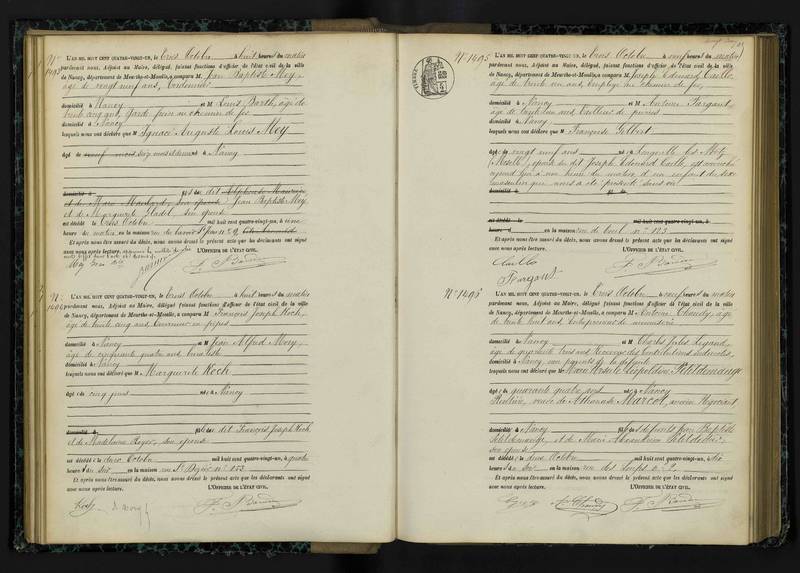 N° 1493
L'AN MIL HUIT CENT QUATRE-VINGT-UN, le trois Octobre à huit heures du matin
pardevant nous, Adjoint au Maire, délégué, faisant fonctions d'officier de l'état civil de la ville
de Nancy, département de Meurthe-et-Moselle, a comparu M. Jean Baptiste Mey
âge de vingt neuf ans, Cordonnier
domicilié à Nancy et M Louis Barth, âgé de
trente cinq ans, garde frein au chemin de fer
domicilié à Nancy
lesquels nous ont déclaré que M Ignace Auguste Louis Mey
âgé de six mois né à Nancy
domicilié à fils dit
Jean Baptiste Mey
et de Marguerite son épouse
est décédé le trois Octobre mil huit cent quatre-vingt-un, à
heure du matin, en la maison rue
Et après nous être assuré du décès, nous avons dressé le présent acte que les déclarants ont signé
avec nous après lecture.
L'OFFICIER DE L'ÉTAT CIVIL.
N° 1494
L'AN MIL HUIT CENT QUATRE-VINGT-UN, le trois Octobre à huit heures du matin
pardevant nous, Adjoint au Maire, délégué, faisant fonctions d'officier de l'état civil de la ville
de Nancy, département de Meurthe-et-Moselle, a comparu M. François Joseph Koch,
âge de trente cinq ans, tourneur en pipes
domicilié à Nancy et M Jean Alfred Mory,
âge de cinquante quatre ans
domicilié à Nancy
lesquels nous ont déclaré que M Marguerite Koch
âgé de cinq jours né à Nancy
domicilié à fille dit François Joseph Koch
et de Madeleine Royer, son épouse
est décédé le deux Octobre mil huit cent quatre-vingt-un, à quatre
heures du soir en la maison rue St Dizier n° 153
Et après nous être assuré du décès, nous avons dressé le présent acte que les déclarants ont signé
avec nous après lecture.
L'OFFICIER DE L'ÉTAT CIVIL.
Koch
N° 1495
L'AN MIL HUIT CENT QUATRE-VINGT-UN, le trois Octobre à neuf heures du matin
pardevant nous, Adjoint au Maire, délégué, faisant fonctions d'officier de l'état civil de la ville
de Nancy, département de Meurthe-et-Moselle, a comparu M. Joseph Edouard
âge de trente ans, employé au chemin de fer,
domicilié à Nancy et M Antoine Fargant
âge de trente un ans, tailleur de pierres
domicilié à Nancy
lesquels nous ont déclaré que M Françoise Gilbert
âgé de vingt neuf ans né à Longeville les Metz
(Moselle), épouse du dit Joseph Edouard est accouchée
aujourd'hui à une heure du matin d'un enfant du sexe
masculin que nous a été présenté sans vie
domicilié à
est décédé le mil huit cent quatre-vingt-un, à
heure d en la maison rue de Toul n° 123
Et après nous être assuré du décès, nous avons dressé le présent acte que les déclarants ont signé
avec nous après lecture.
L'OFFICIER DE L'ÉTAT CIVIL.
Fargant
N° 1496
L'AN MIL HUIT CENT QUATRE-VINGT-UN, le trois Octobre à neuf heures du matin
pardevant nous, Adjoint au Maire, délégué, faisant fonctions d'officier de l'état civil de la ville
de Nancy, département de Meurthe-et-Moselle, a comparu M. Antoine Chaudy, âgé
de trente huit ans, Entrepreneur de menuiserie
domicilié à Nancy et M Charles Jules Legrand,
âge de quarante trois ans Receveur des Contributions indirectes,
domicilié à Nancy, non parents de la défunte
lesquels nous ont déclaré que M Marie Ursule Léopoldine Petitdemange
âgé de quarante quatre ans né à Nancy
Rentière, veuve de Athanase Marcot, ancien Négociant
domicilié à Nancy fille des défunts Jean Baptiste
Petitdemange, et de Marie
son épouse
est décédé le deux Octobre mil huit cent quatre-vingt-un, à six
heures du soir en la maison rue des n° 2
Et après nous être assuré du décès, nous avons dressé le présent acte que les déclarants ont signé
avec nous après lecture.
L'OFFICIER DE L'ÉTAT CIVIL.